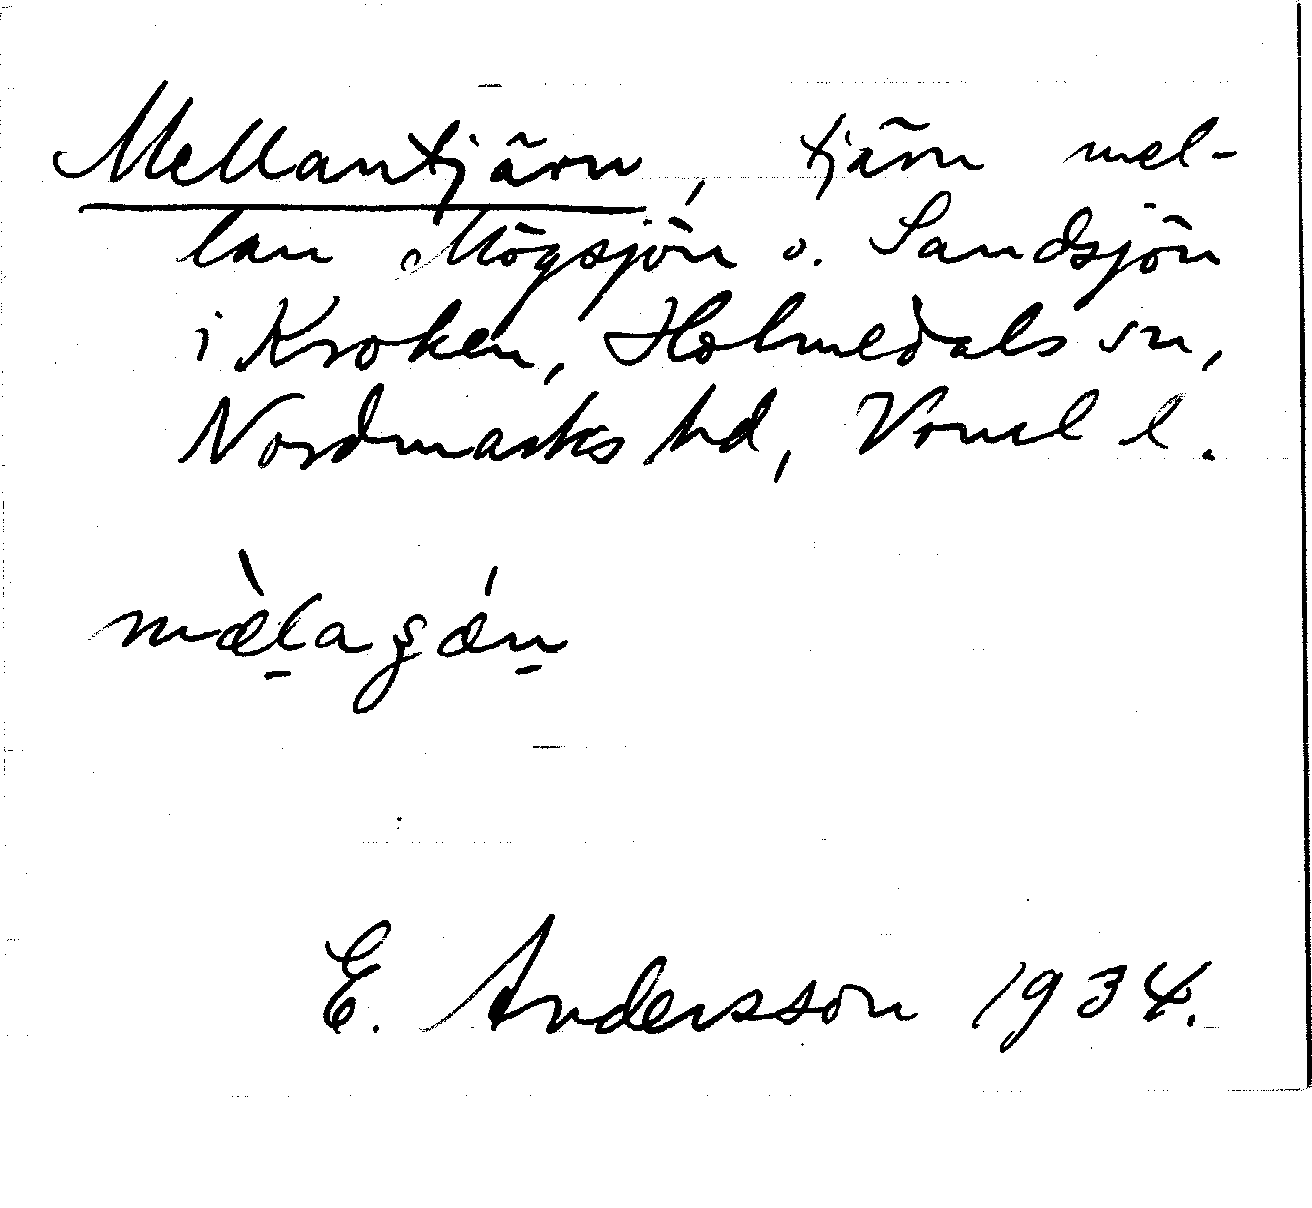 Mellantjärn, tjärn mel-
lan Mögsjön o. Sandsjön
i Kroken, Holmedals sn,
Nordmarks hd, Vrml l.
E. Andersson 1934.